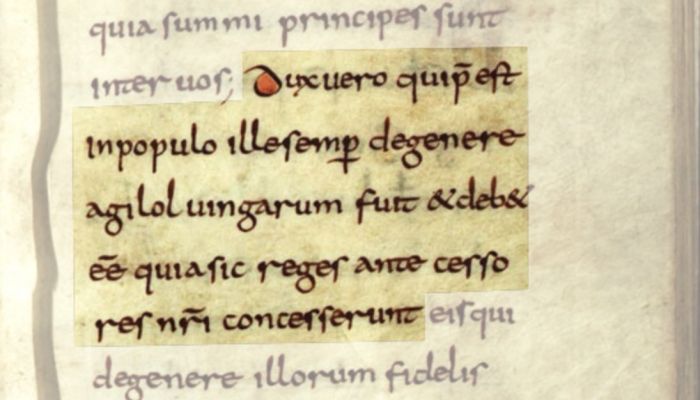 quia summi principes sunt
inter uos; Dux uero qui p̄est
in populo ille semꝑ degenere
agiloluuingarum fuit & deb&
eē quia sic reges ante cesso
res nr̄i concesserunt eis qui
degenere illorum fidelis